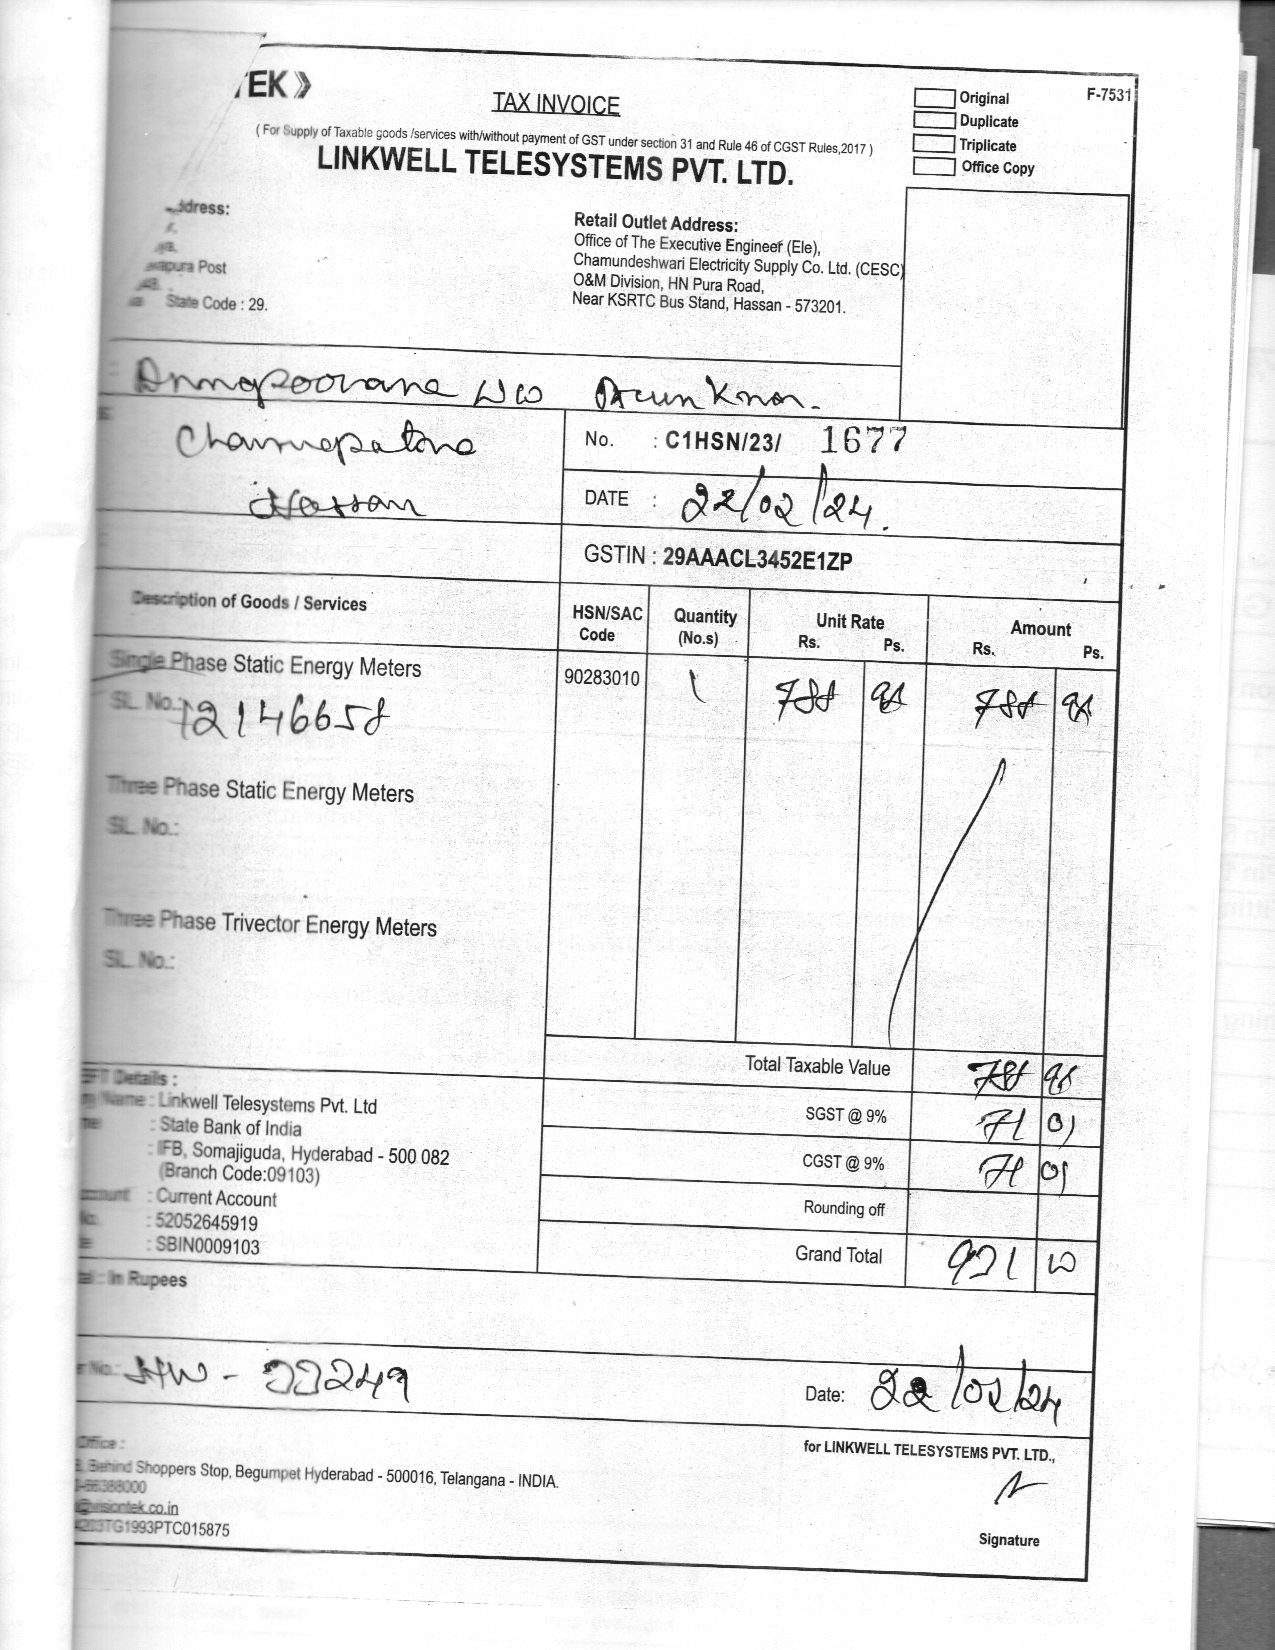 TEK》
TAX INVOICE
Original
F-7531
Duplicate
Triplicate
Office Copy
( For Supply of Taxable goods /services with/without payment of GST under section 31 and Rule 46 of CGST Rules,2017 )
LINKWELL TELESYSTEMS PVT. LTD.
Address:
Post
State Code : 29.
Retail Outlet Address:
Office of The Executive Engineer (Ele),
Chamundeshwari Electricity Supply Co. Ltd. (CESC)
O&M Division, HN Pura Road,
Near KSRTC Bus Stand, Hassan - 573201.
Channapatna
Hassan
No. : C1HSN/23/ 1677
DATE : 22/02/24.
GSTIN : 29AAACL3452E1ZP
Description of Goods / Services
HSN/SAC Code
Quantity (No.s)
Unit Rate
Rs. Ps.
Amount
Rs. Ps.
Single Phase Static Energy Meters 90283010 1 788 98 788 98
SL. No.: 12146658
Three Phase Static Energy Meters
SL. No.:
Three Phase Trivector Energy Meters
SL. No.:
Total Taxable Value 788 98
SGST @ 9% 71 01
CGST @ 9% 71 01
Rounding off
Grand Total 931 00
Details :
Name : Linkwell Telesystems Pvt. Ltd
: State Bank of India
: IFB, Somajiguda, Hyderabad - 500 082
(Branch Code:09103)
: Current Account
: 52052645919
: SBIN0009103
: In Rupees
No.:
Date: 22/02/24
for LINKWELL TELESYSTEMS PVT. LTD.,
Office :
Behind Shoppers Stop, Begumpet Hyderabad - 500016, Telangana - INDIA.
@visiontek.co.in
TG1993PTC015875
Signature